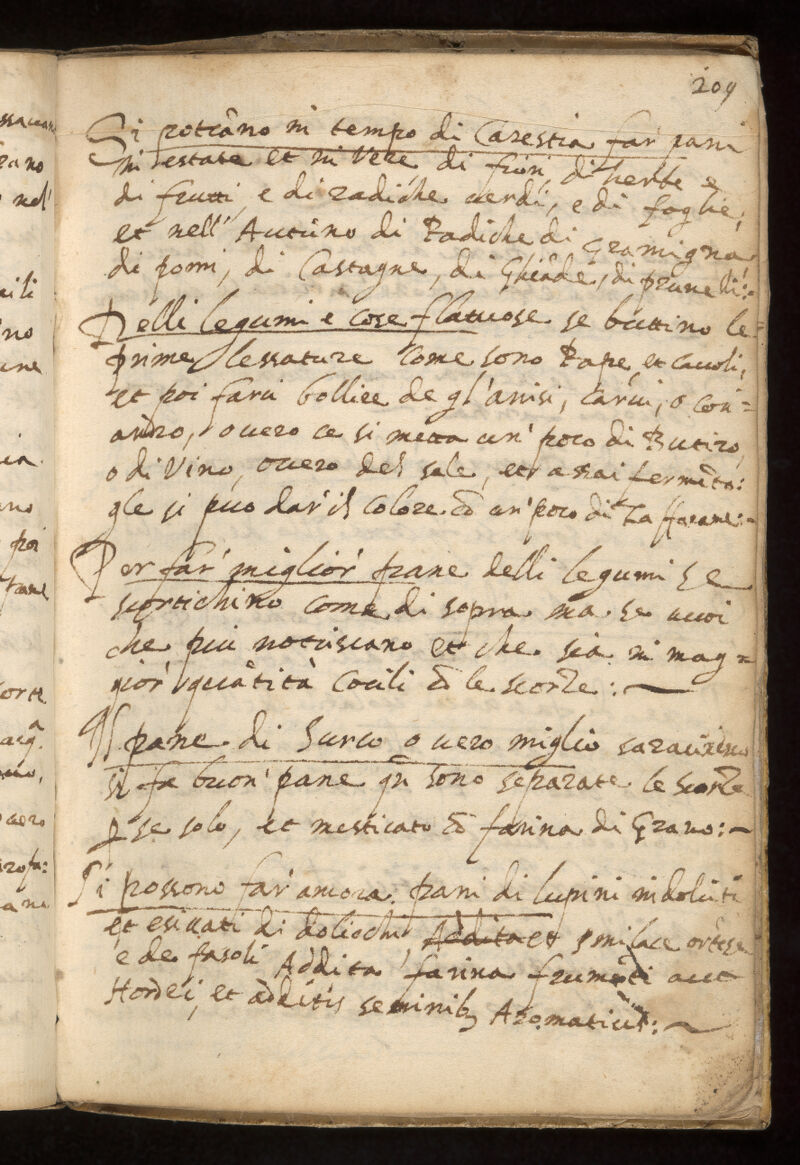 209
Si potrâno in tempo di Carestia far' pani
in estate et in Vere di fiori, di herbe e
di frutti, e di radiche verdi, e di foglie;
et nell' Autũno di Radiche di Gramigna
di pomi, di Castagne, di Ghiãde, di prunelli:~
Nelli legumi e cose flatuose se buttino le
prime lessature come sono Rape, et cauoli,
et poi farui bollire de gl'anisi, carui, o con=
andro, ouero ce si metta un' poco di Butiro,
o di Vino, ouero del sale, et assai fermẽto:
gle si puo dar' il colore cõ un' poco di Zaffarane:~
Per far' miglior' pane delli legumi se
scortichino come di sopra ma se uuoi
che piu notriscano et che sia in mag=
gior' quãtità cocili cõ le scorze:~
Il pane di Surco o uero miglio saracineno
si fa buon' pane qñ sono separate le scorze
p se solo, et mesticato cõ farina di Grano:~
Si possono far' ancora pani di lupini indolciti
et esiccati di dolicchi, Addita et smilace ortẽse
e de fasoli Addita farina frumẽti aut
Hordei, et additis seminibꝫ Aromaticis:~
ssaccano
nel'
ili
ino
une
ia
ano
poi
tane
orte
acq.
ouero
ane